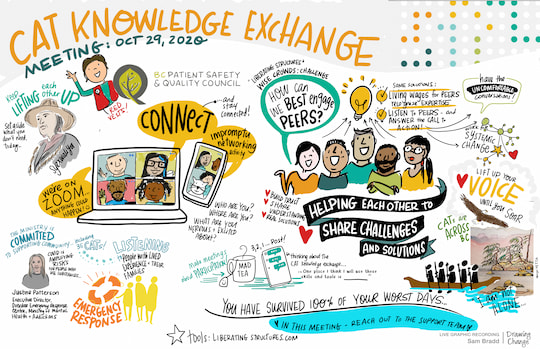 CAT KNOWLEDGE EXCHANGE
MEETING: OCT 29, 2020
KEEP
LIFTING each
other UP
Set aside
what you
don't need,
Today.
BC PATIENT SAFETY
& QUALITY COUNCIL
CONNECT
and
stay
connected!
Impromptu
networking
activity
WE'RE
ON ZOOM...
ANYTHING COULD
HAPPEN!
WHO ARE YOU?
WHERE ARE YOU?
WHAT ARE YOU
NERVOUS + EXCITED
ABOUT?
LIBERATING STRUCTURES
WISE CROWDS: CHALLENGE
HOW can
WE BEST engage
PEERS?
SOME SOLUTIONS!
Living wages for PEERS
"RESPONSIVE EXPERTISE"
LISTEN TO PEERS - and
ANSWER the CALL TO
ACTION!
Have the
UNCOMFORTABLE
conversations
SYSTEMIC
CHANGE
LIFT UP YOUR
VOICE
UNTIL YOU SOAR
BUILD TRUST
& SHARE
UNDERSTANDING
REAL SOLUTIONS
HELPING EACH OTHER TO
SHARE CHALLENGES
AND SOLUTIONS
CATs
ARE
ACROSS
BC
THE MINISTRY IS
COMMITTED
TO SUPPORTING community
CATs!
COVID IS
AMPLIFYING
RISKS
FOR PEOPLE WHO
USE SUBSTANCES
LISTENING
to PEOPLE WITH LIVED
EXPERIENCE + THEIR
FAMILIES
EMERGENCY
RESPONSE
Executive Director,
Overdose Emergency Response
Centre, Ministry of Mental
Health + Addictions
make meetings
about PARTICIPATION
3, 2, 1... Post!
MAD
TEA
Thinking about the
CAT Knowledge Exchange...
One place I think I will use these
skills and tools is
YOU HAVE SURVIVED 100% OF YOUR WORST DAYS...
YOU ARE NOT
ALONE...
IN THIS MEETING - REACH OUT TO THE SUPPORT TEAM
TOOLS: LIBERATING STRUCTURES.COM
LIVE GRAPHIC RECORDING
Sam Bradd
Drawing
Change